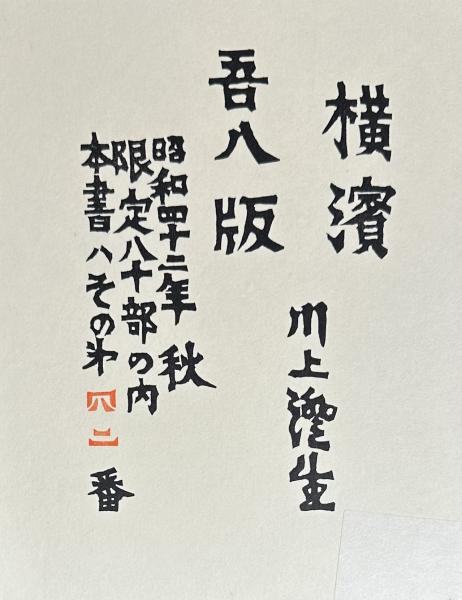 横濱
川上澄生
吾八版
昭和四十二年 秋
限定八十部の内
本書ハその㐧四二番